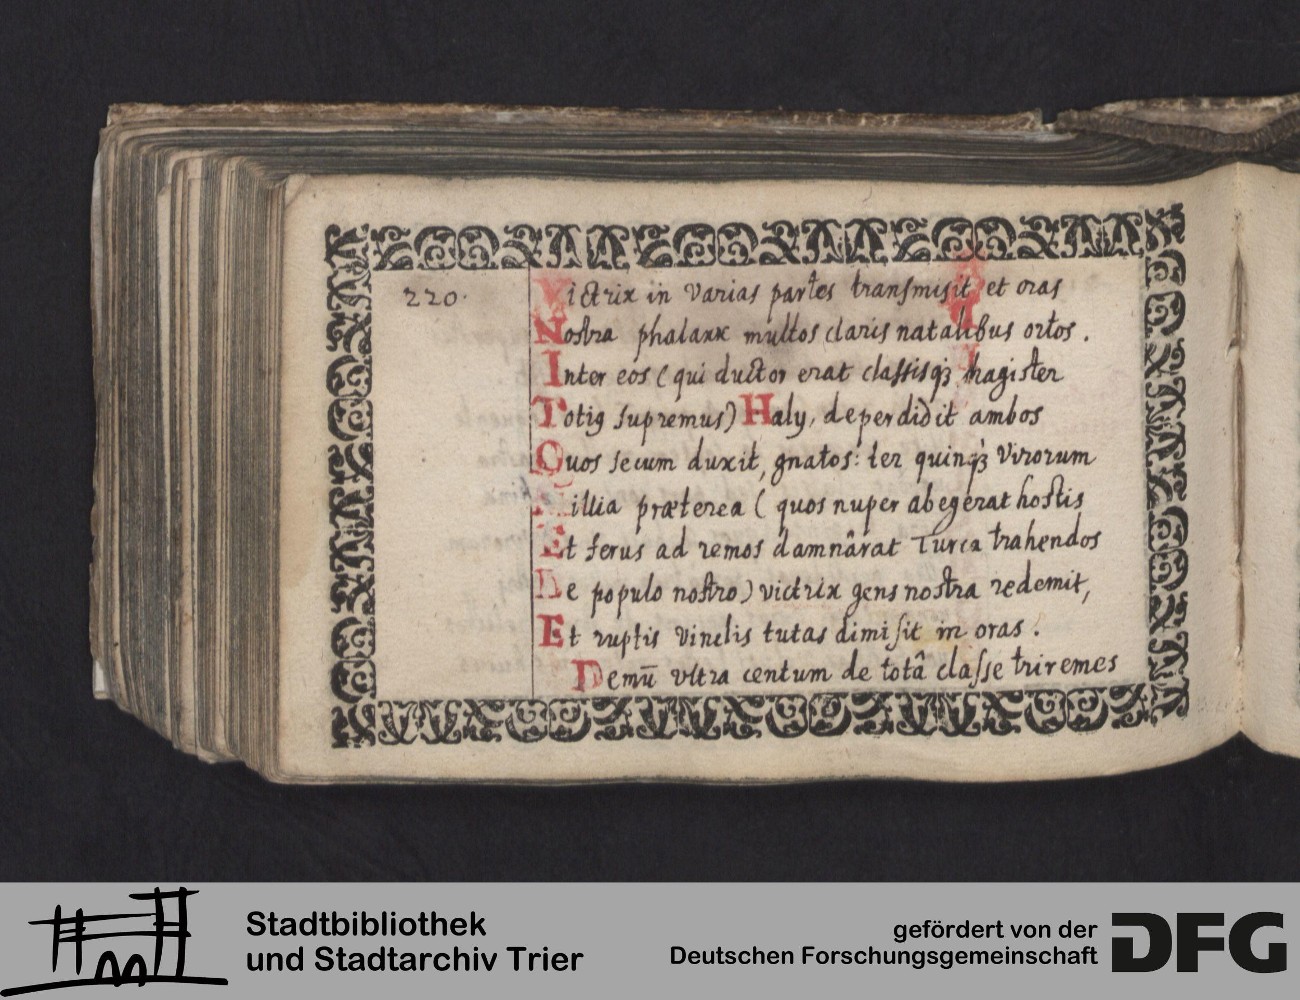 220.
Victrix in varias partes transmisit et oras
Nostra phalanx multos claris natalibus ortos.
Inter eos (qui ductor erat classisqꝫ magister
Totiꝯ supremus) Haly, deperdidit ambos
Quos secum duxit, gnatos: ter quinqꝫ virorum
Millia præterea (quos nuper abegerat hostis
Et ferus ad remos damnârat Turca trahendos
De populo nostro) victrix gens nostra redemit,
Et ruptis vinclis tutas dimisit in oras.
Demū vltra centum de totâ classe triremes
Stadtbibliothek
und Stadtarchiv Trier
gefördert von der
Deutschen Forschungsgemeinschaft
DFG